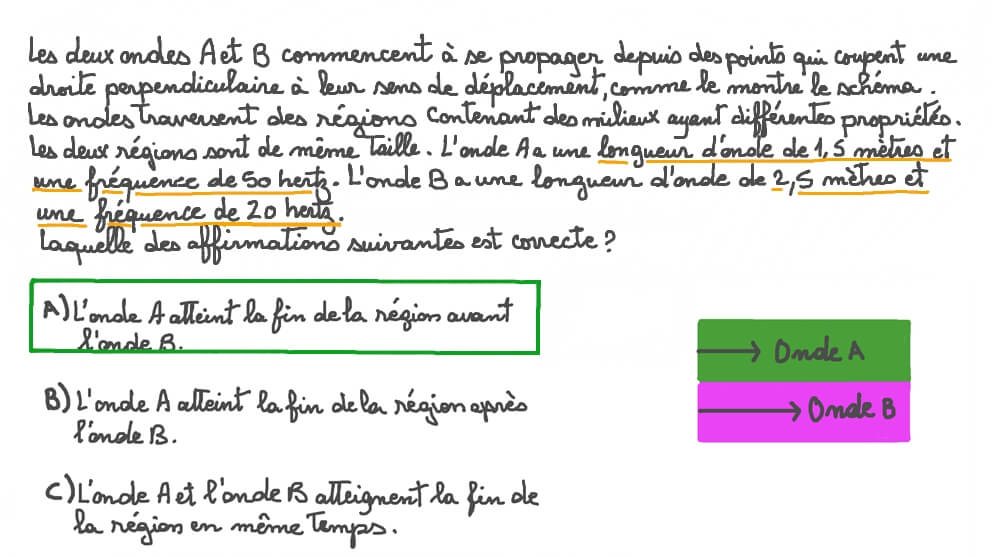 Les deux ondes A et B commencent à se propager depuis des points qui coupent une
droite perpendiculaire à leur sens de déplacement, comme le montre le schéma.
Les ondes traversent des régions contenant des milieux ayant différentes propriétés.
Les deux régions sont de même taille. L'onde A a une longueur d'onde de 1,5 mètres et
une fréquence de 50 hertz. L'onde B a une longueur d'onde de 2,5 mètres et
une fréquence de 20 hertz.
Laquelle des affirmations suivantes est correcte ?
A) L'onde A atteint la fin de la région avant
l'onde B.
Onde A
B) L'onde A atteint la fin de la région après
l'onde B.
Onde B
C) L'onde A et l'onde B atteignent la fin de
la région en même temps.